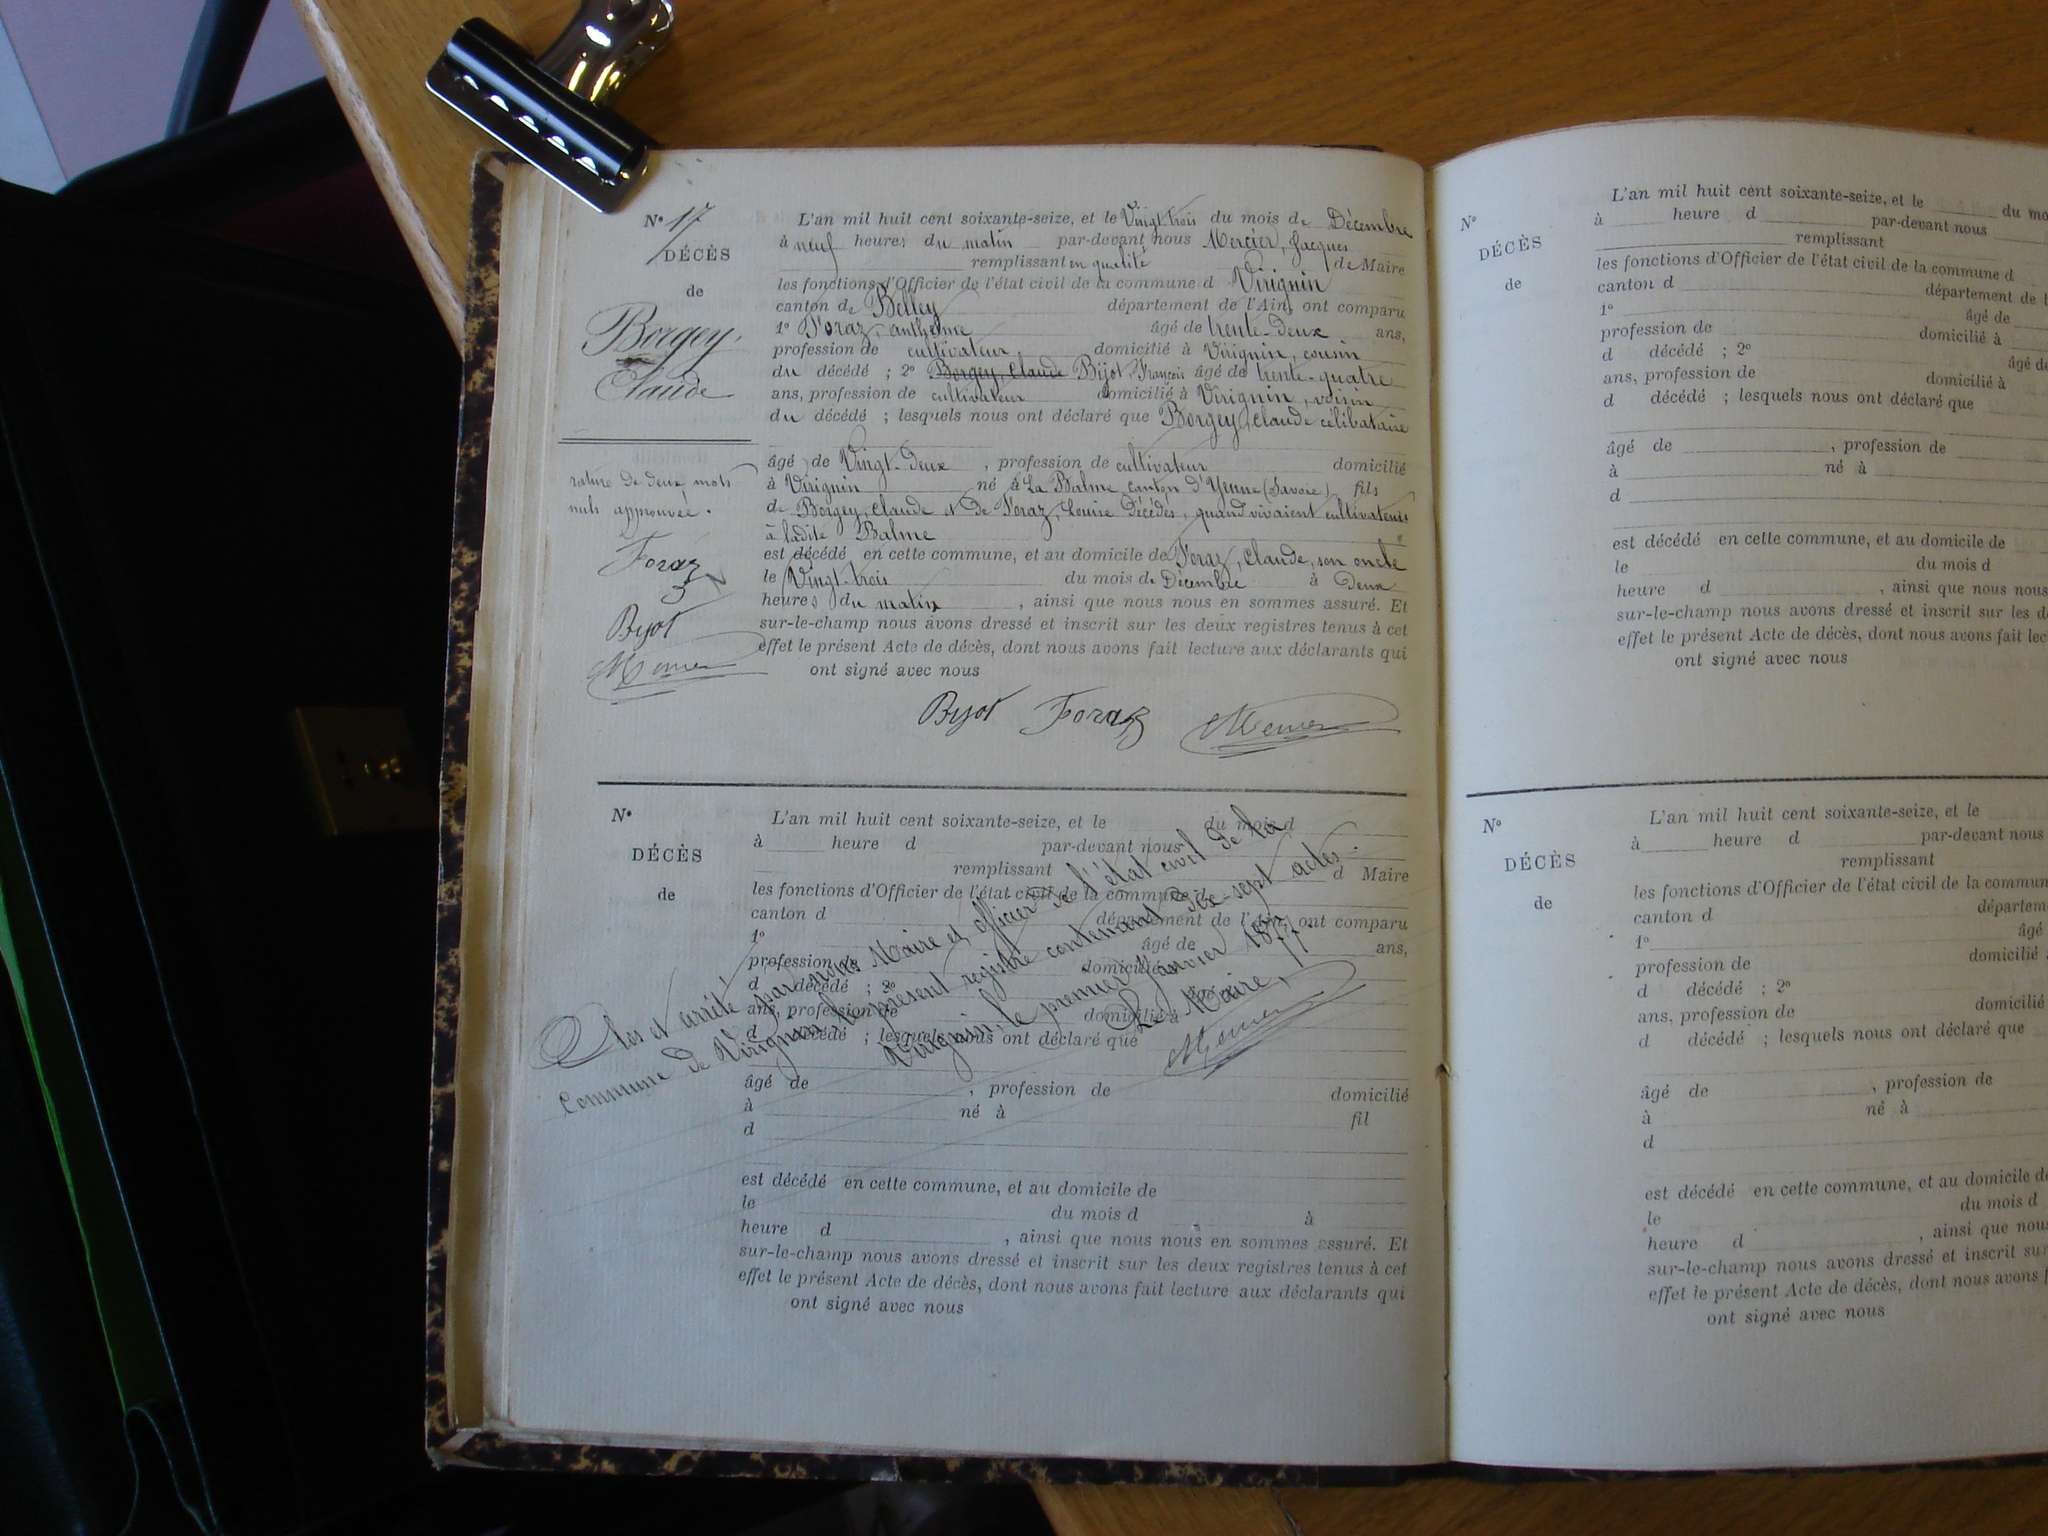 N° 17
DÉCÈS
de
Borgey,
Claude
L'an mil huit cent soixante-seize, et le Vingt trois du mois de Décembre
à neuf heures du matin par-devant nous Mercier, Jacques
remplissant en qualité de Maire
les fonctions d'Officier de l'état civil de la commune d Virignin
canton de Belley département de l'Ain, ont comparu
1° Foraz, anthelme âgé de trente-deux ans,
profession de cultivateur domicilié à Virignin, cousin
du décédé ; 2° Borgey, Claude Bijot François âgé de trente-quatre
ans, profession de cultivateur domicilié à Virignin, voisin
du décédé ; lesquels nous ont déclaré que Borgey, Claude célibataire
âgé de Vingt-deux , profession de cultivateur domicilié
à Virignin né à La Balme canton d'Yenne (Savoie) fils
de Borgey, Claude et De Foraz, Louise Décédés, quand vivaient cultivateurs
à ladite Balme
est décédé en cette commune, et au domicile de Foraz, Claude, son oncle
le Vingt-trois du mois de Décembre à Deux
heures du matin , ainsi que nous nous en sommes assuré. Et
sur-le-champ nous avons dressé et inscrit sur les deux registres tenus à cet
effet le présent Acte de décès, dont nous avons fait lecture aux déclarants qui
ont signé avec nous
rature de deux mots
nuls approuvée.
Foraz
Bijot
Mercier
Bijot Foraz Mercier
N°
DÉCÈS
de
L'an mil huit cent soixante-seize, et le du mois d
à heure d par-devant nous
remplissant d Maire
les fonctions d'Officier de l'état civil de la commune d
canton d département de l'Ain, ont comparu
1° âgé de ans,
profession de domicilié à
d décédé ; 2° âgé de
ans, profession de domicilié à
d décédé ; lesquels nous ont déclaré que
Clos et arrêté par nous Maire et officier de l'état civil de la
Commune de Virignin le présent registre contenant dix-sept actes.
Virignin, le premier Janvier 1877.
Le Maire,
Mercier
âgé de , profession de domicilié
à né à fil
d
est décédé en cette commune, et au domicile de
le du mois d à
heure d , ainsi que nous nous en sommes assuré. Et
sur-le-champ nous avons dressé et inscrit sur les deux registres tenus à cet
effet le présent Acte de décès, dont nous avons fait lecture aux déclarants qui
ont signé avec nous
N°
DÉCÈS
de
L'an mil huit cent soixante-seize, et le du mo
à heure d par-devant nous
remplissant
les fonctions d'Officier de l'état civil de la commune d
canton d département de l
1° âgé de
profession de domicilié à
d décédé ; 2° âgé de
ans, profession de domicilié à
d décédé ; lesquels nous ont déclaré que
âgé de , profession de
à né à
d
est décédé en cette commune, et au domicile de
le du mois d
heure d , ainsi que nous nous
sur-le-champ nous avons dressé et inscrit sur les d
effet le présent Acte de décès, dont nous avons fait lec
ont signé avec nous
N°
DÉCÈS
de
L'an mil huit cent soixante-seize, et le
à heure d par-devant nous
remplissant
les fonctions d'Officier de l'état civil de la commun
canton d départeme
1° âgé
profession de domicilié à
d décédé ; 2°
ans, profession de domicilié
d décédé ; lesquels nous ont déclaré que
âgé de , profession de
à né à
d
est décédé en cette commune, et au domicile de
le du mois d
heure d , ainsi que nous
sur-le-champ nous avons dressé et inscrit sur
effet le présent Acte de décès, dont nous avons f
ont signé avec nous